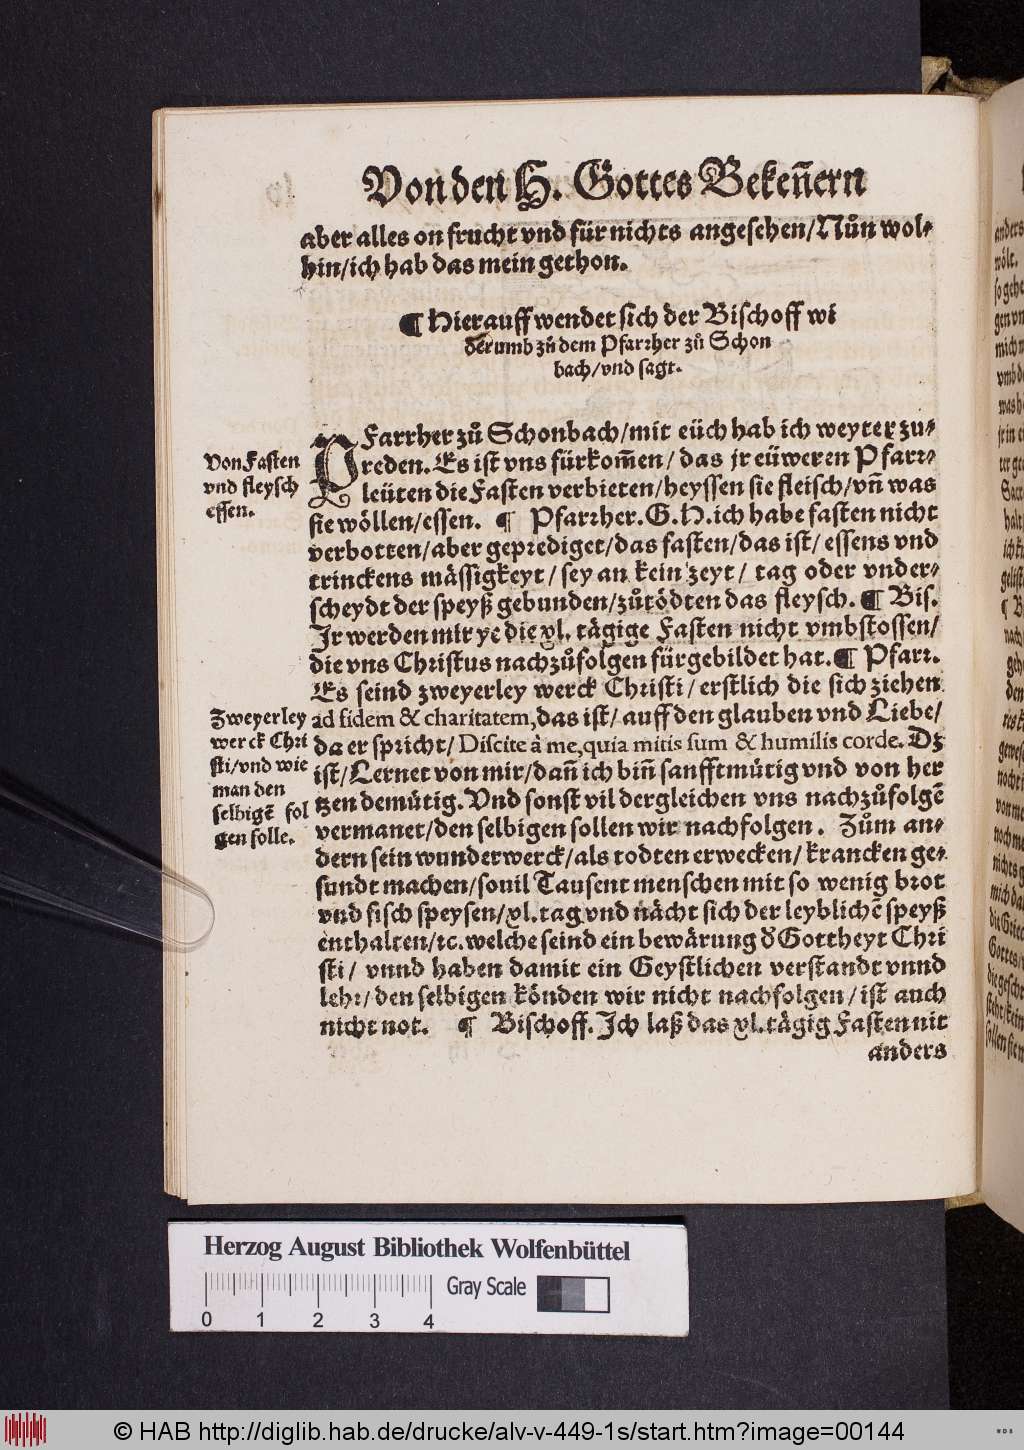 Von den H. Gottes Bekeñern
aber alles on frucht vnd für nichts angesehen/Nůn wol-
hin/ich hab das mein gethon.
¶ Hierauff wendet sich der Bischoff wi
derumb zů dem Pfarrher zů Schon
bach/vnd sagt.
Von Fasten
vnd fleysch
essen.
PFarrher zů Schonbach/mit eüch hab ich weyter zu-
reden. Es ist vns fürkom̃en/ das jr eüweren Pfarr-
leüten die Fasten verbieten/heyssen sie fleisch/vñ was
sie wöllen/essen. ¶ Pfarrher. G.H. ich habe fasten nicht
verbotten/aber geprediget/das fasten/das ist/ essens vnd
trinckens mässigkeyt/ sey an kein zeyt/ tag oder vnder-
scheydt der speyß gebunden/zůtödten das fleysch. ¶ Bis.
Jr werden mir ye die xl. tägige Fasten nicht vmbstossen/
die vns Christus nachzůfolgen fürgebildet hat. ¶ Pfarr.
Es seind zweyerley werck Christi/ erstlich die sich ziehen
Zweyerley
werck Chri
sti/vnd wie
man den
selbigẽ fol
gen solle.
ad fidem & charitatem, das ist/ auff den glauben vnd Liebe/
da er spricht/ Discite à me, quia mitis sum & humilis corde. Dz
ist/ Lernet von mir/dañ ich biñ sanfftmütig vnd von her
tzen demütig. Vnd sonst vil dergleichen vns nachzůfolgẽ
vermanet/den selbigen sollen wir nachfolgen. Zům an-
dern sein wunderwerck/als todten erwecken/ krancken ge-
sundt machen/souil Tausent menschen mit so wenig brot
vnd fisch speysen/xl. tag vnd nächt sich der leyblichẽ speyß
enthalten/ꝛc. welche seind ein bewärung d̕ Gottheyt Chri
sti/ vnnd haben damit ein Geystlichen verstandt vnnd
lehr/den selbigen könden wir nicht nachfolgen/ist auch
nicht not. ¶ Bischoff. Ich laß das xl. tägig Fasten nit
anders
Herzog August Bibliothek Wolfenbüttel
Gray Scale
0 1 2 3 4
© HAB http://diglib.hab.de/drucke/alv-v-449-1s/start.htm?image=00144